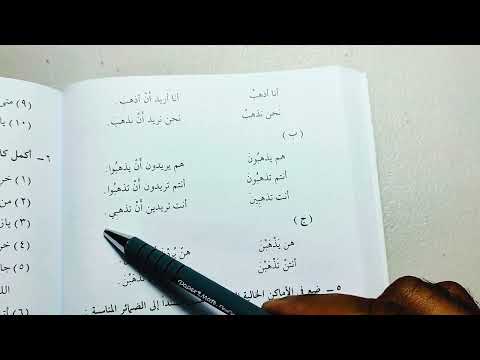 أنا أذهبُ أنا أريد أنْ أذهبَ .
نحن نذهبُ نحن نريد أنْ نذهبَ .
( ب )
هم يذهبُونَ هم يريدون أنْ يذهبُوا .
أنتم تذهبُونَ أنتم تريدون أنْ تذهبُوا .
أنت تذهبِينَ أنت تريدين أنْ تذهبي .
( ج )
هن يَذْهَبْنَ هنّ
أنتنّ تَذْهَبْنَ تَذْهَبْنَ .
٥ – ضع في الأماكن الخالية إلى الضمائر المناسبة :
(٩) متى
(١٠) يا
٦ – أكمل
(١) خر
(٢) من
(٣) ياز
(٤) خر
(٥) جا
الله
(٦) أ
PaperMate